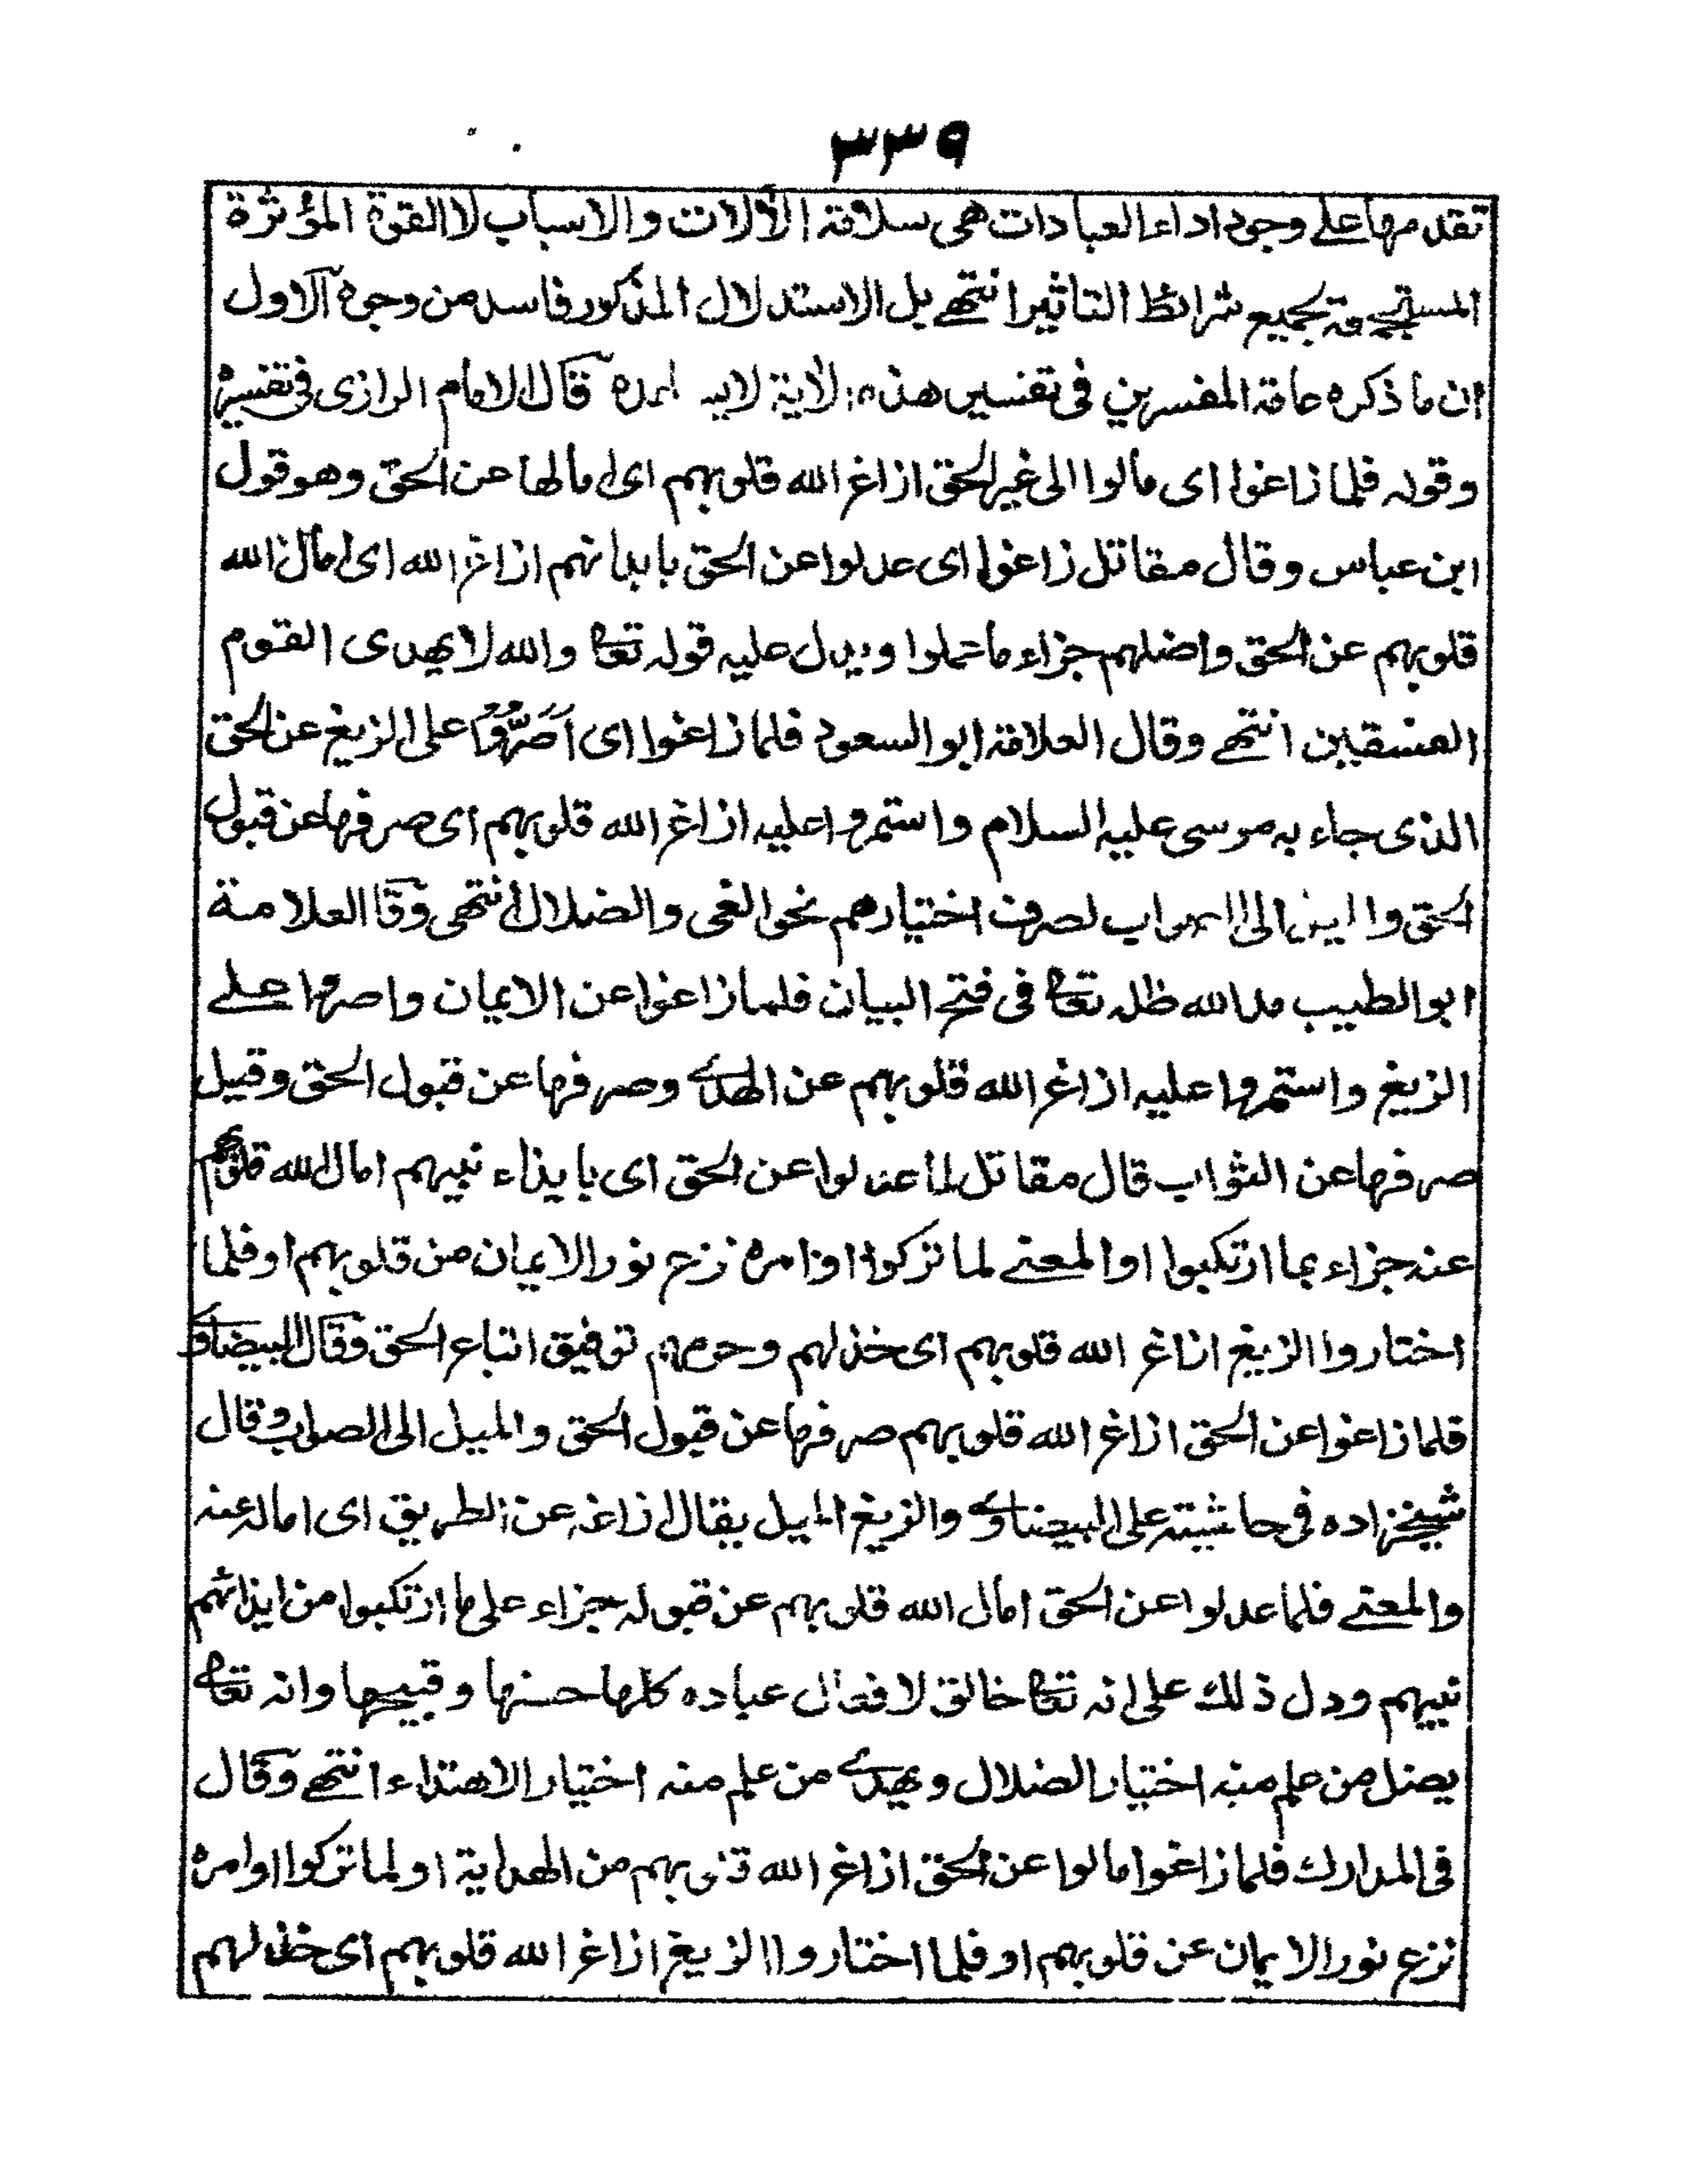 ٣٣٩
تقدمها على وجود اداء العبادات هى سلامة الألات والاسباب لا القوة المؤثرة
المستجمعة بجميع شرائط التاثير انتهے بل الاستدلال المذكور فاسد من وجوه الاول
ان ما ذكره عامة المفسرين فى تفسير هذه الأية قال الامام الرازى فى تفسيره
وقوله فلما زاغوا اى مالوا الى غير الحق ازاغ الله قلوبهم اى امالها عن الحق وهو قول
ابن عباس وقال مقاتل زاغوا اى عدلوا عن الحق بابدانهم ازاغ الله اى امال الله
قلوبهم عن الحق واضلهم جزاء ما عملوا ويدل عليه قوله تعالى والله لا يهدى القوم
الفسقين انتهے وقال العلامة ابو السعود فلما زاغوا اى اَصَرُّوْا على الزيغ عن الحق
الذى جاء به موسى عليه السلام واستمروا عليه ازاغ الله قلوبهم اى صرفها عن قبول
الحق والميل الى الصواب لصرف اختيارهم نحو الغى والضلال انتهى وقال العلامة
ابو الطيب مد الله ظله تعالى فى فتح البيان فلما زاغوا عن الايمان واصروا علے
الزيغ واستمروا عليه ازاغ الله قلوبهم عن الهدے وصرفها عن قبول الحق وقيل
صرفها عن الثواب قال مقاتل لما عدلوا عن الحق اى بايذاء نبيهم امال الله قلوبهم
عنه جزاء بما ارتكبوا او المعنے لما تركوا اوامره نزع نور الايمان من قلوبهم او فلما
اختاروا الزيغ ازاغ الله قلوبهم اى خذلهم وحرمهم توفيق اتباع الحق وقال البيضاوے
فلما زاغوا عن الحق ازاغ الله قلوبهم صرفها عن قبول الحق والميل الى الصواب وقال
شيخزاده فى حاشيته على البيضاوے والزيغ الميل يقال ازاغه عن الطريق اى اماله عنه
والمعنے فلما عدلوا عن الحق امال الله قلوبهم عن قبوله جزاء على ما ارتكبوا من ايذائهم
نبيهم ودل ذلك على انه تعالى خالق لافعال عباده كلها حسنها وقبيحها وانه تعالى
يضل من علم منه اختيار الضلال ويهدے من علم منه اختيار الاهتداء انتهے وقال
فى المدارك فلما زاغوا مالوا عن الحق ازاغ الله قلوبهم من الهداية او لما تركوا اوامره
نزع نور الايمان عن قلوبهم او فلما اختاروا الزيغ ازاغ الله قلوبهم اى خذلهم